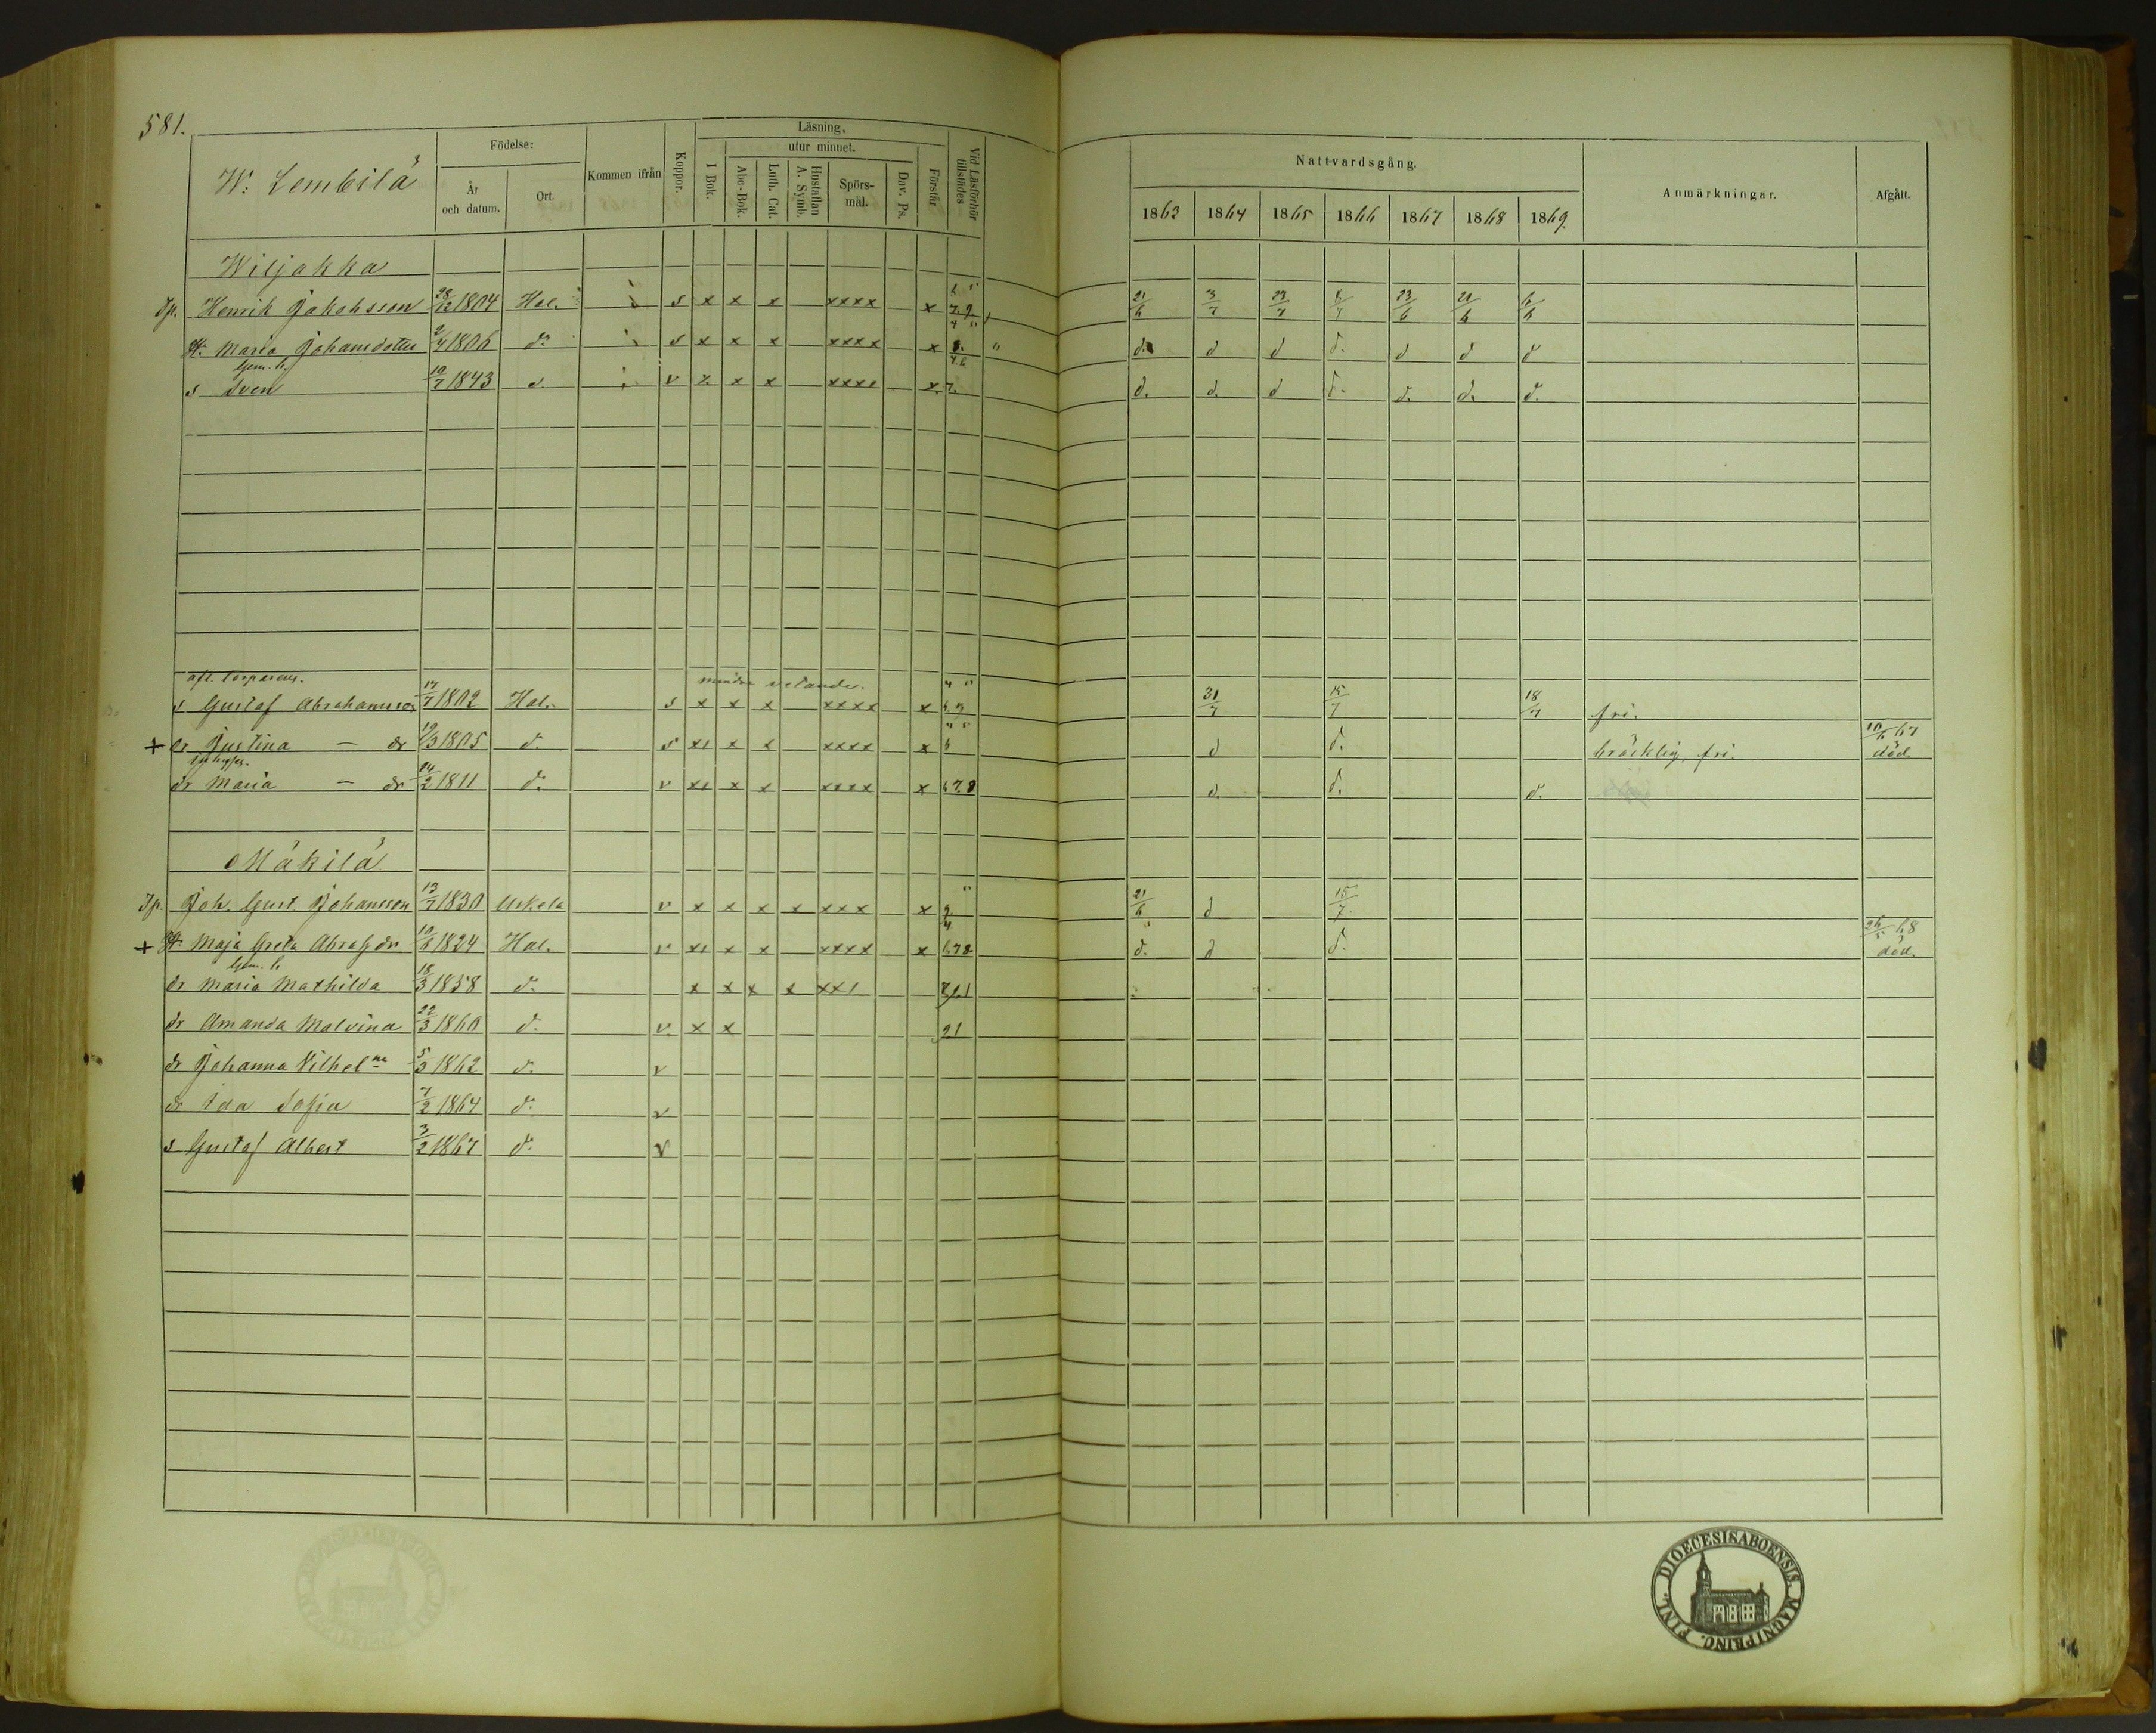 581.
W: Lembilä
Födelse:
År och datum.
Ort.
Kommen ifrån
Koppor.
Läsning.
utur minnet.
I Bok.
Abc-Bok.
Luth. Cat.
Hustaflan A. Symb.
Spörs-mål.
Dav. Ps.
Förstår
Vid Läsförhör tillstädes
Nattvardsgång.
1863 1864 1865 1866 1867 1868 1869.
Anmärkningar.
Afgått.
Wiljakka
Tp. Henrik Jakobsson 28/12 1804 Hal. s x x x xxxx x 21/6 3/7 23/7 23/6 21/6 6/6
H: Maria Johansdotter 2/4 1806 d:o s x x x xxxx x d. d d d. d d d
s Sven 10/7 1843 d v x x x xxxx x 7. d. d. d d. d. d. d.
afl. torparens.
mindre vetande.
s Gustaf Abrahamsson 17/7 1802 Hal. s x x x xxxx x 31/7 15/7 18/7 fri.
+ dr Justina — dr 19/3 1805 d. s xx x x xxxx x 6 d d. bräcklig, fri. 10/6 67 död.
dr Maria — dr 24/2 1811 d. v xx x x xxxx x 678 d. d. d.
Mäkilä
Tp. Joh. Gust. Johansson 13/7 1830 Uskela v x x x x xxx x 21/6 d 15/7.
+ H: Maja Greta Abrah.dr 10/6 1824 Hal. v xx x x xxxx x 678 d. d d. 26/5 68 död.
dr Maria Mathilda 18/3 1858 d:o x x x x xx1
dr Amanda Malvina 22/3 1860 d. v. x x 91
dr Johanna Vilhel:na 5/3 1862 d. v
dr Ida Sofia 7/2 1864 d:o v
s Gustaf Albert 3/2 1867 d:o v
DIOECESIS ABOENSIS. MAGNI PRINC. FINL.